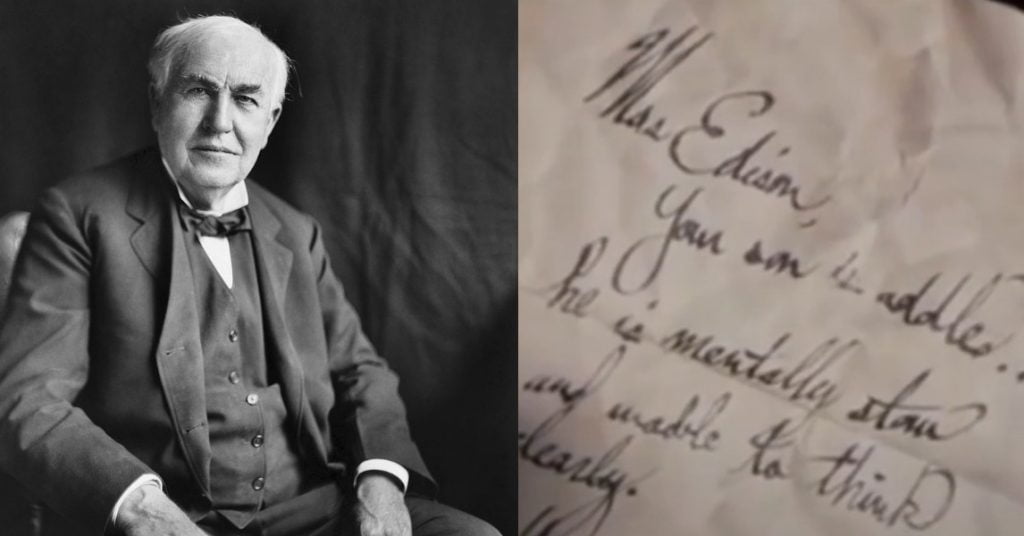 Mrs Edison,
Your son is addled..
he is mentally slow
and unable to think
clearly.